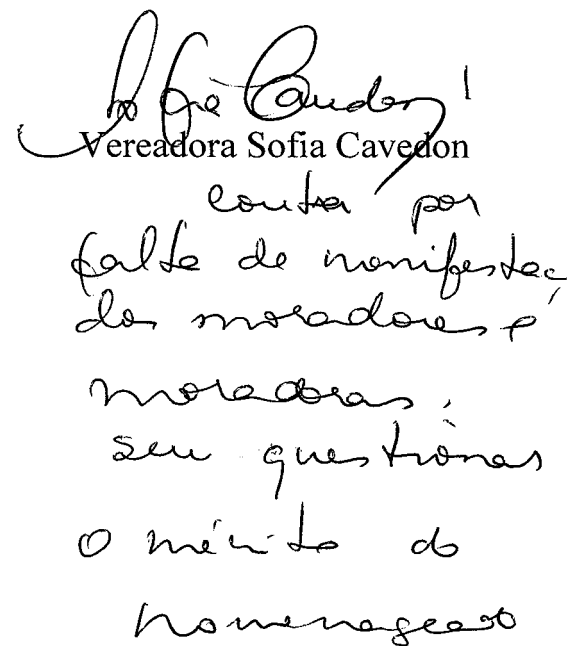 Sofia Cavedon
Vereadora Sofia Cavedon
contra por
falta de manifestaç
dos moradores e
moradoras,
sem questionar
o mérito do
homenageado